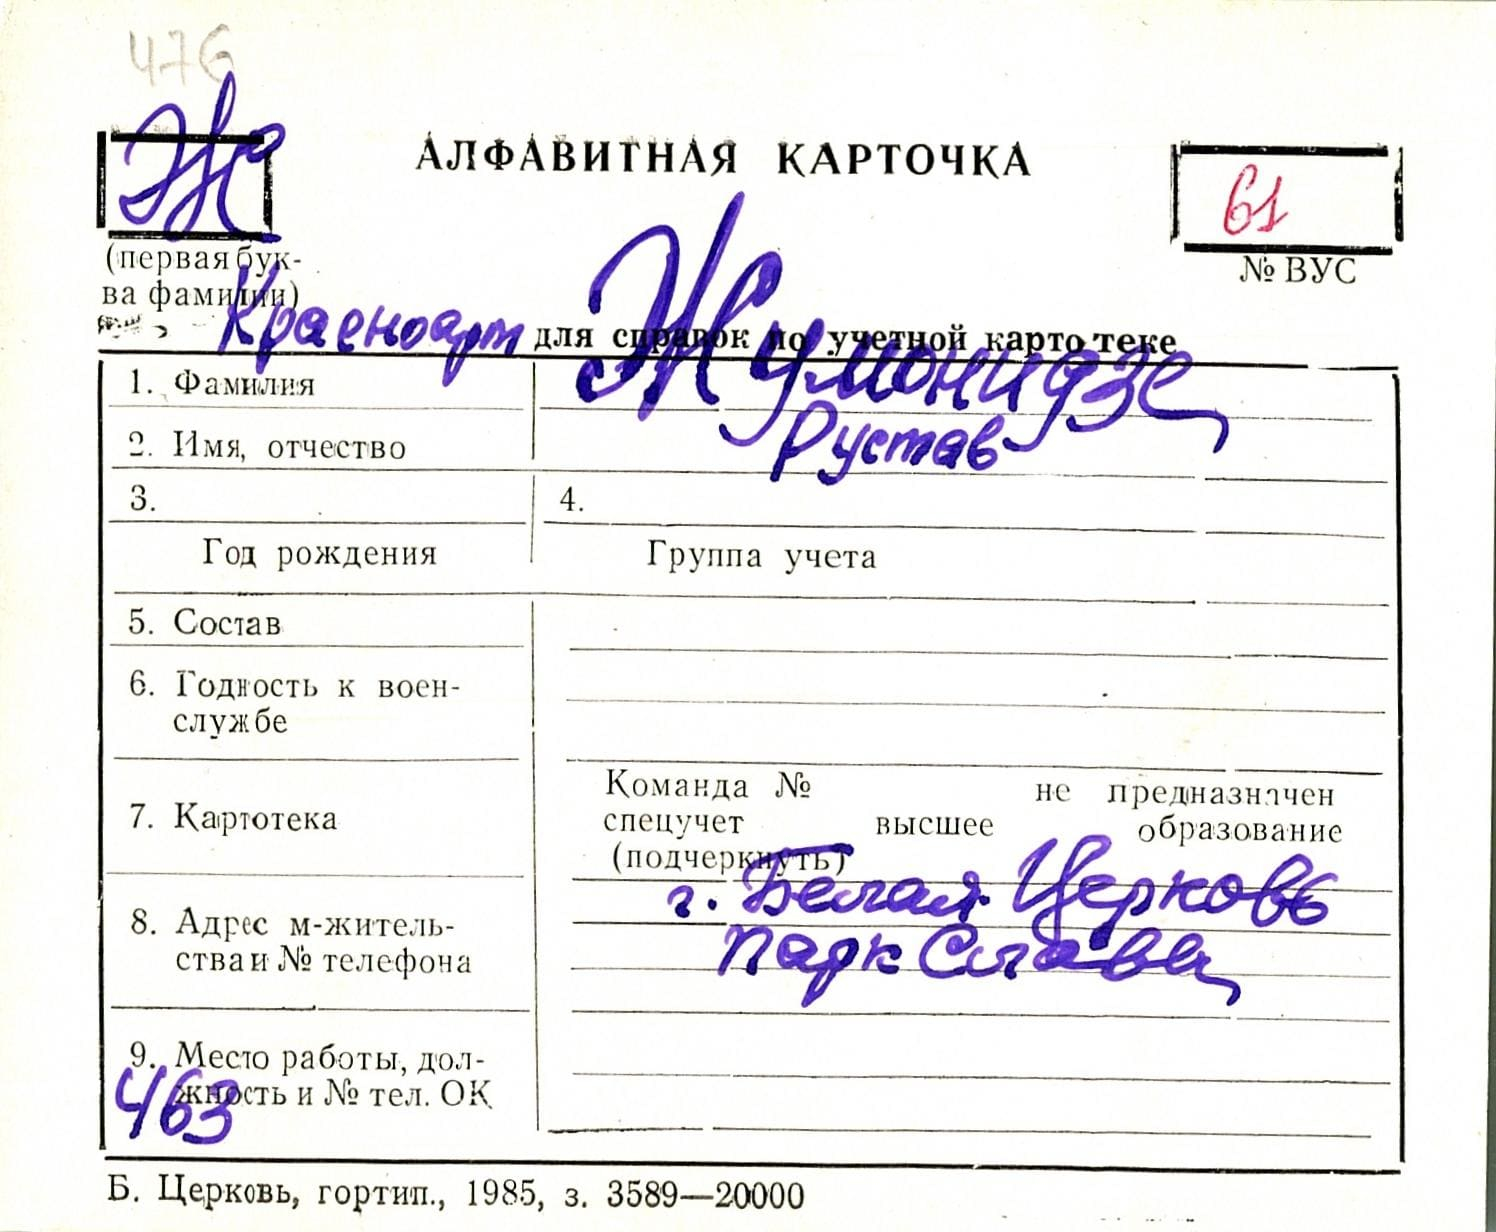 476
Ж
АЛФАВИТНАЯ КАРТОЧКА
61
(первая бук-
ва фамилии)
№ ВУС
Красноарм
для справок по учетной картотеке
1. Фамилия
Жумонидзе
2. Имя, отчество
Рустав
3.
4.
Год рождения
Группа учета
5. Состав
6. Годность к воен-
службе
7. Картотека
Команда № не предназначен
спецучет высшее образование
(подчеркнуть)
8. Адрес м-житель-
ства и № телефона
г. Белая Церковь
парк Слава
9. Место работы, дол-
жность и № тел. ОК
463
Б. Церковь, гортип., 1985, з. 3589—20000